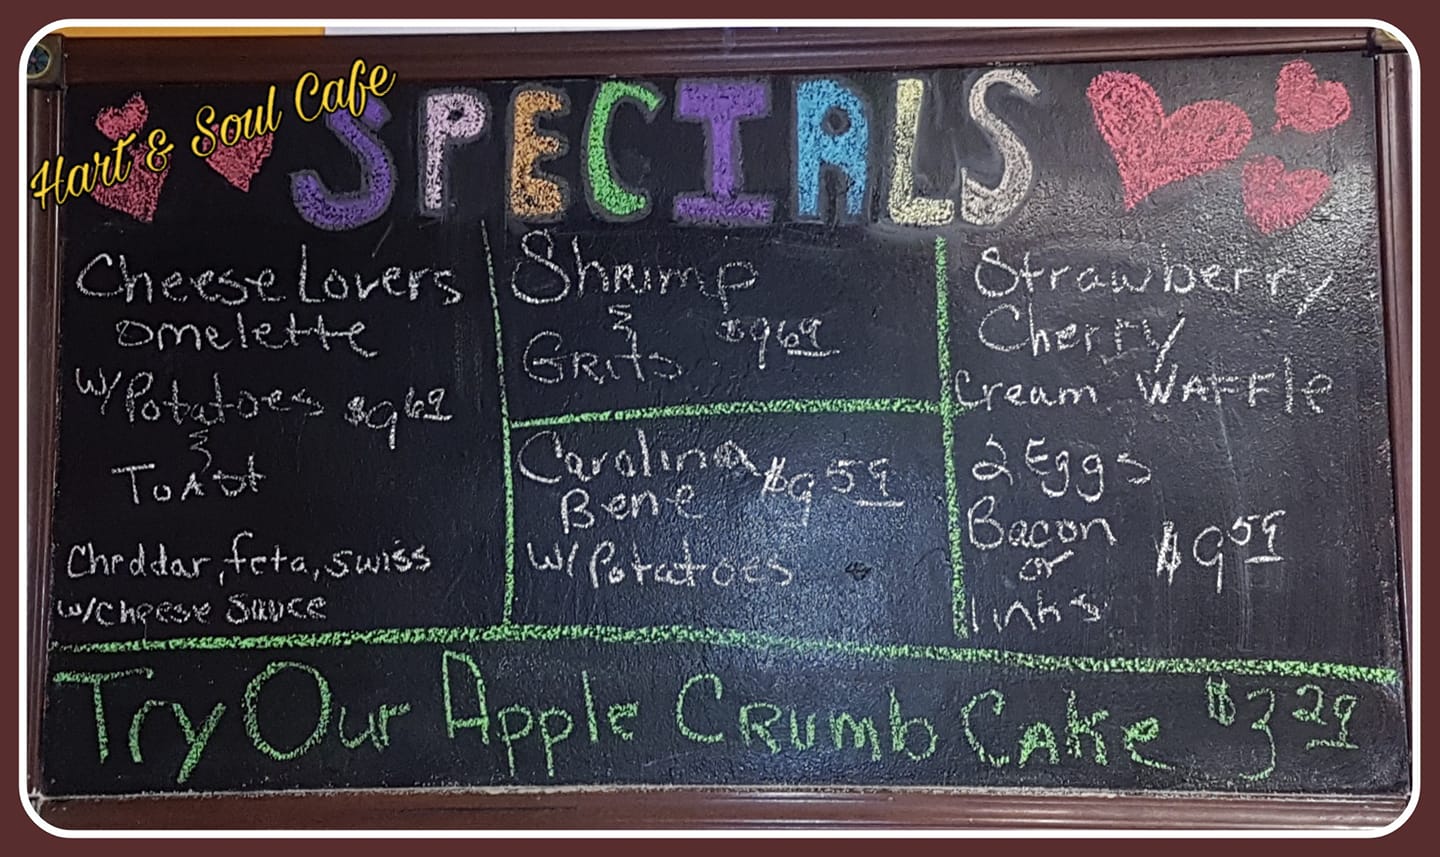 Hart & Soul Cafe
SPECIALS
Cheese Lovers
omelette
w/Potatoes $9.69
&
Toast
Cheddar, feta, swiss
w/cheese Sauce
Shrimp
&
Grits $9.69
Carolina
Bene $9.59
w/Potatoes
Strawberry
Cherry
Cream WAFFle
2 Eggs
Bacon
or $9.59
links
Try Our Apple Crumb Cake $3.29